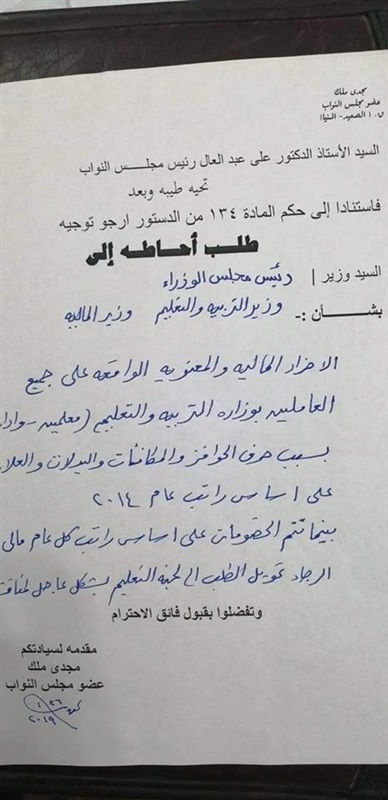 مجدى ملك
عضو مجلس النواب
السيد الأستاذ الدكتور على عبد العال رئيس مجلس النواب
تحيه طيبه وبعد
فاستنادا إلى حكم المادة ١٣٤ من الدستور ارجو توجيه
طلب أحاطه إلى
السيد وزير / رئيس مجلس الوزراء
بشأن :- وزير التربيه والتعليم وزير الماليه
الاضرار الماليه والمعنويه الواقعه على جميع
العاملين بوزاره التربيه والتعليم (معلمين - وادا
بسبب صرف الحوافز والمكافئات والبدلات والعلا
على اساس راتب عام ٢٠١٤
بينما تتم الخصومات على اساس راتب كل عام مالى
الرجاء تحويل الطلب الى لجنة التعليم بشكل عاجل لمناقش
وتفضلوا بقبول فائق الاحترام
مقدمه لسيادتكم
مجدى ملك
عضو مجلس النواب
١/٢٦
٢٠١٩